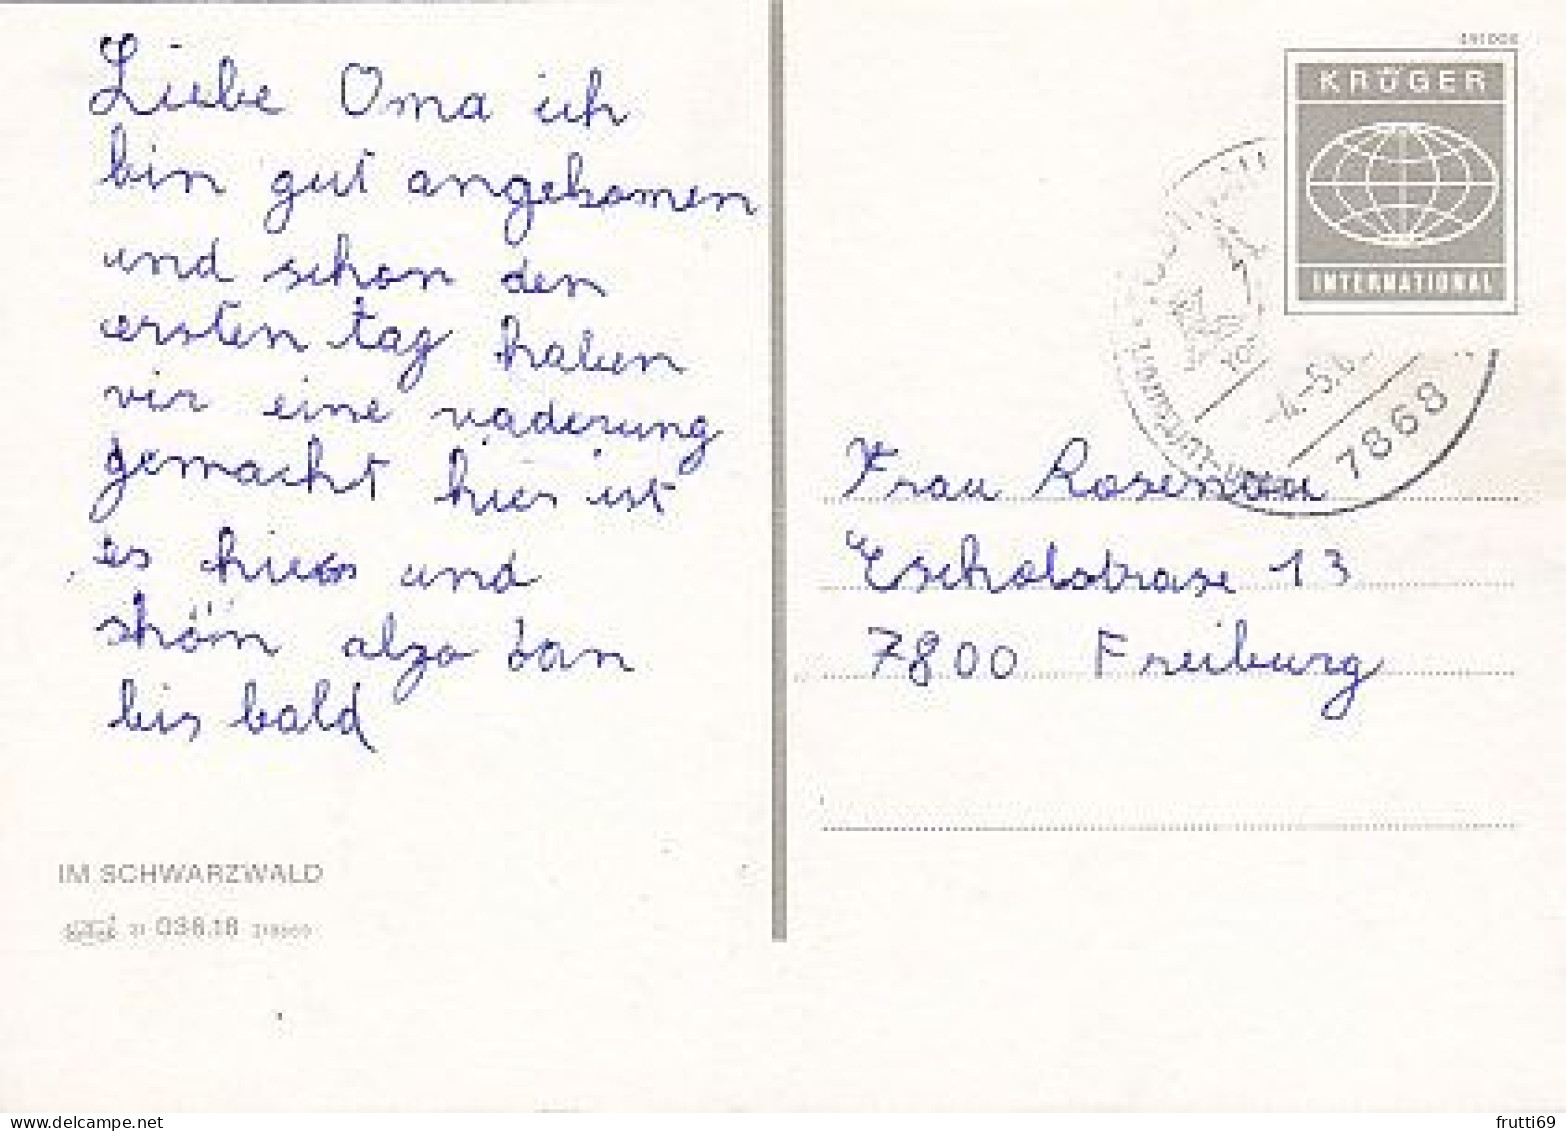 Liebe Oma ich
bin gut angekomen
und schon den
ersten tag haben
vir eine vaderung
gemacht hier ist
es hier und
shön alzo dan
bis bald
IM SCHWARZWALD
036.18
KRÜGER
INTERNATIONAL
7868
Frau Rosenau
Escholstrase 13
7800 Freiburg
frutti69